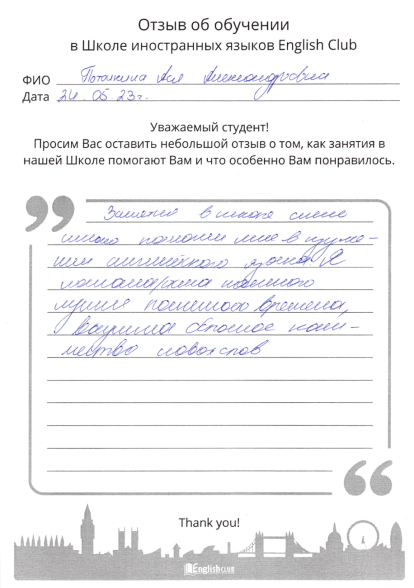 Отзыв об обучении
в Школе иностранных языков English Club
ФИО Потапкина Ася Александровна
Дата 24.05 23г.
Уважаемый студент!
Просим Вас оставить небольшой отзыв о том, как занятия в
нашей Школе помогают Вам и что особенно Вам понравилось.
Занятия в школе
помогли мне в изуче-
нии английского языка Я
намного
лучше понимать времена,
выучила огромное коли-
чество новых слов
Thank you!
English CLUB